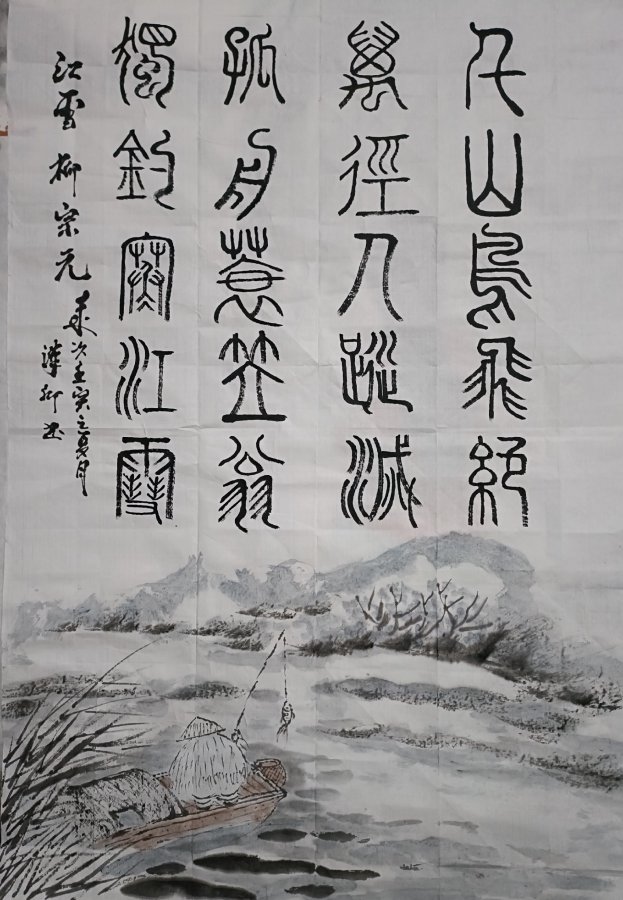 千山鳥飛絕
萬徑人蹤滅
孤舟蓑笠翁
獨釣寒江雪
江雪 柳宗元
歲次壬寅之夏月